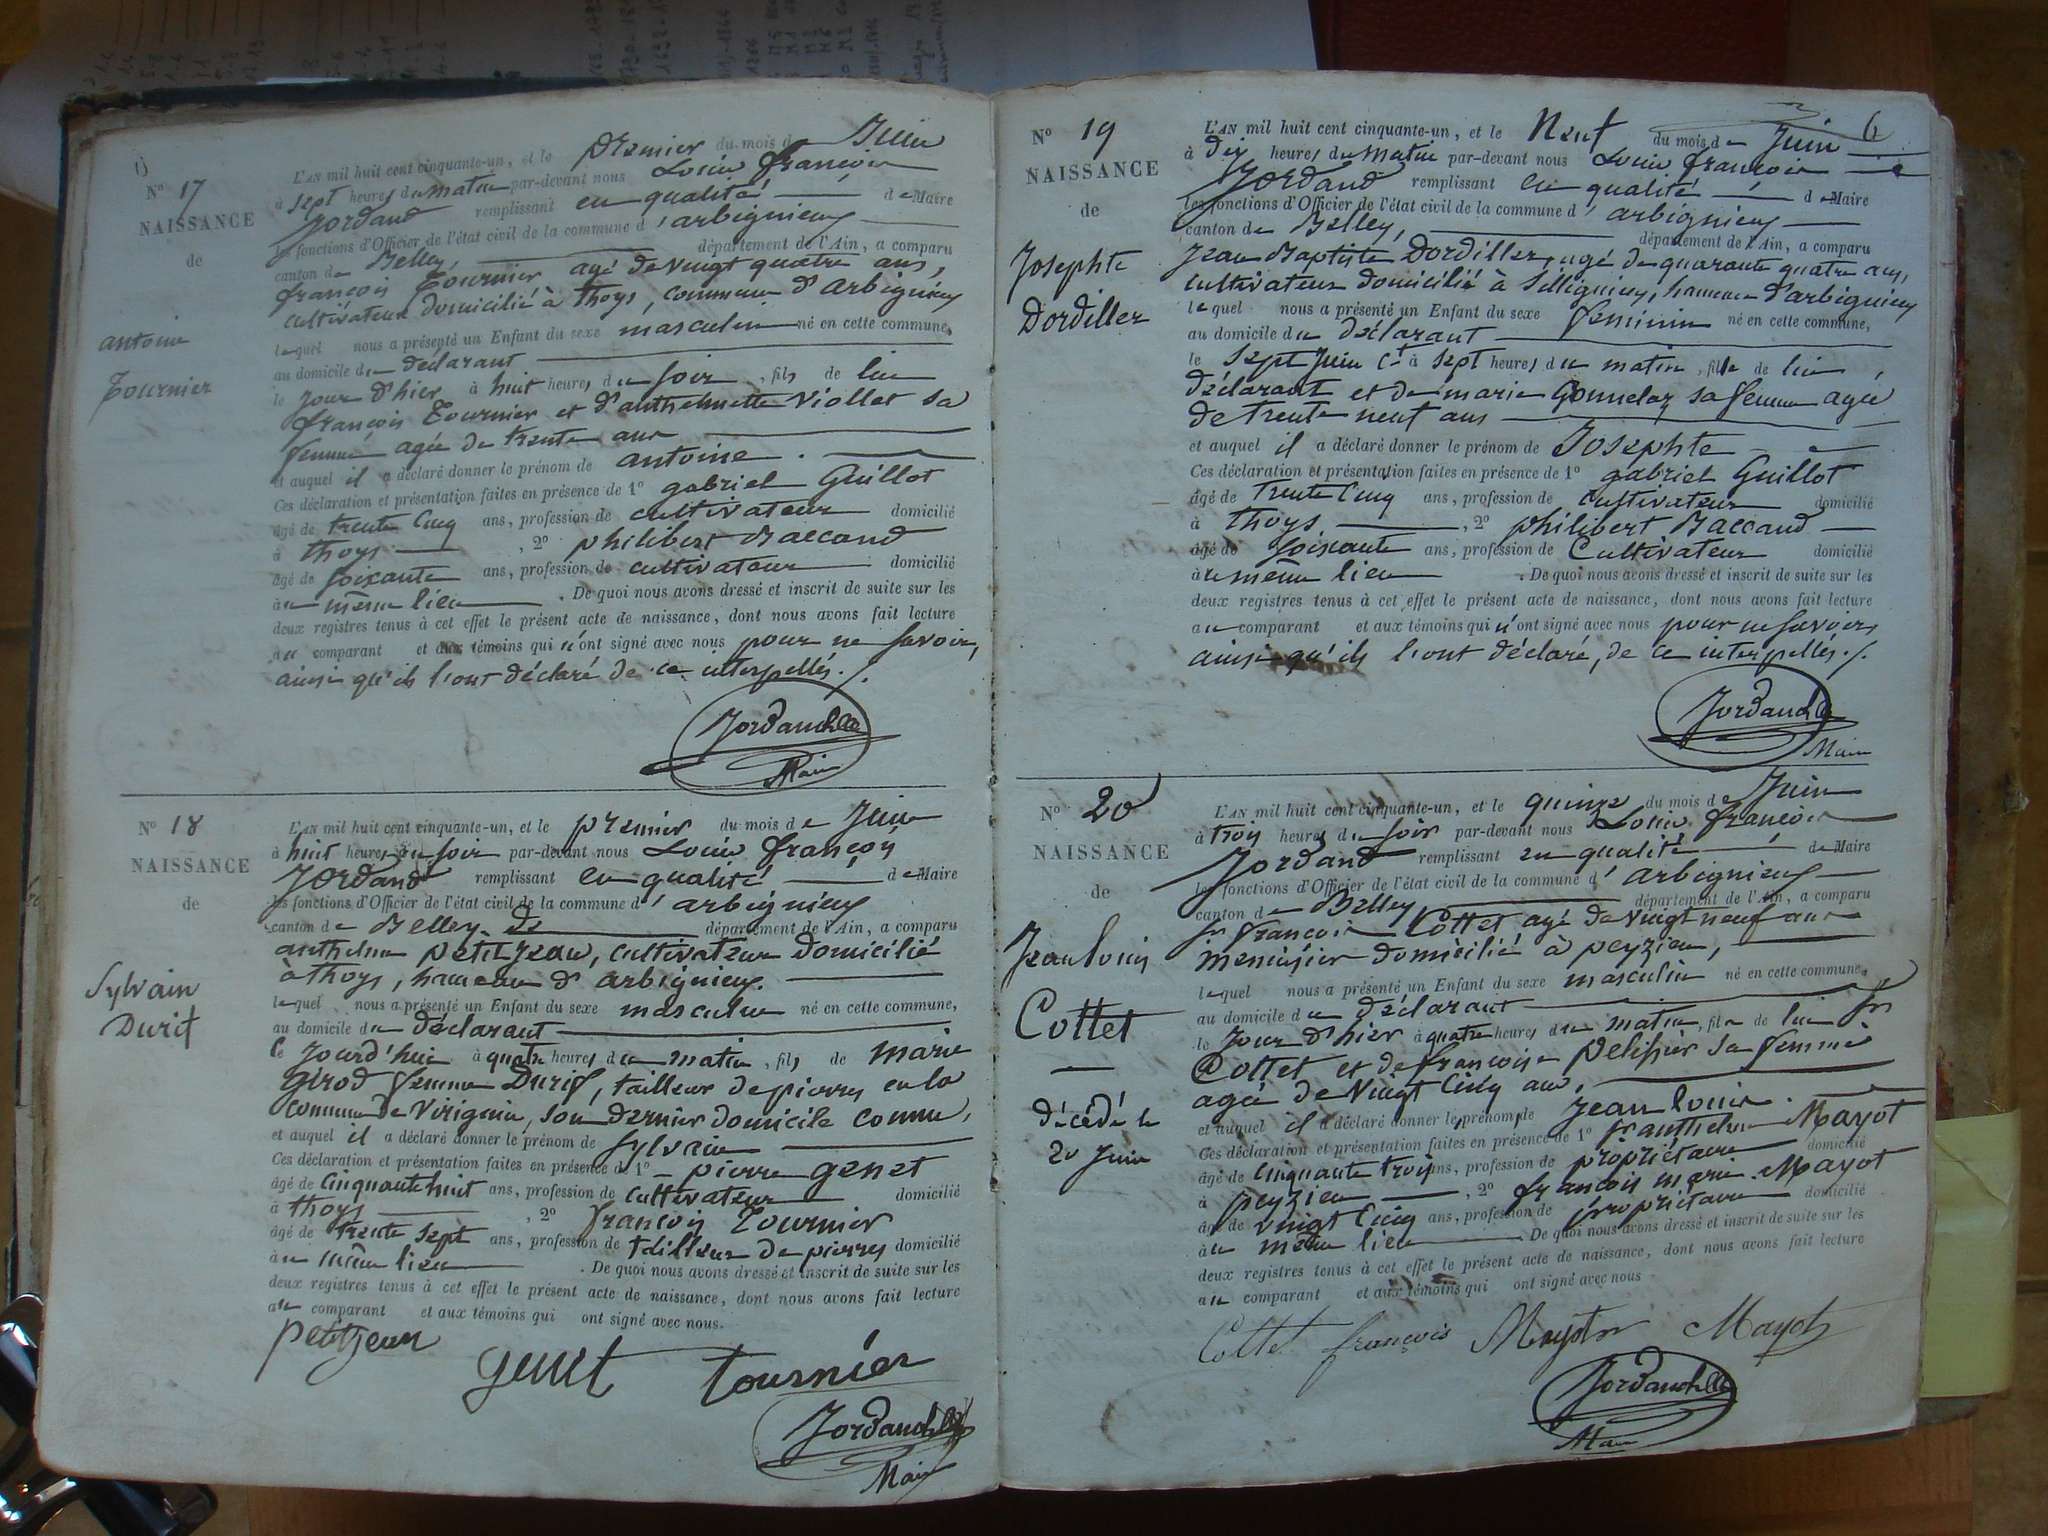 N° 17
NAISSANCE
de
antoine
Tournier
L'AN mil huit cent cinquante-un, et le premier du mois de Juin
à sept heures du matin par-devant nous Louis françois
Jordand remplissant en qualité de Maire
les fonctions d'Officier de l'état civil de la commune d'arbignieux
canton de Belley, département de l'Ain, a comparu
françois Tournier agé de vingt quatre ans,
cultivateur domicilié à thoys, commune d'arbignieux
lequel nous a présenté un Enfant du sexe masculin né en cette commune,
au domicile du déclarant
le jour d'hier à huit heures du soir, fils de lui
françois Tournier et d'anthelmette Viollet sa
femme agée de trente ans
et auquel il a déclaré donner le prénom de antoine.
Ces déclaration et présentation faites en présence de 1° gabriel Guillot
âgé de trente cinq ans, profession de cultivateur domicilié
à thoys, 2° philibert Baccand
âgé de soixante ans, profession de cultivateur domicilié
au même lieu. De quoi nous avons dressé et inscrit de suite sur les
deux registres tenus à cet effet le présent acte de naissance, dont nous avons fait lecture
au comparant et aux témoins qui n'ont signé avec nous pour ne savoir,
ainsi qu'ils l'ont déclaré de ce interpellés./.
Jordand
Maire
N° 18
NAISSANCE
de
Sylvain
Durif
L'AN mil huit cent cinquante-un, et le premier du mois de Juin
à huit heures du soir par-devant nous Louis françois
Jordand remplissant en qualité de Maire
les fonctions d'Officier de l'état civil de la commune d'arbignieux
canton de Belley. de département de l'Ain, a comparu
anthelme petit jean, cultivateur domicilié
à thoys, hameau d'arbignieux.
lequel nous a présenté un Enfant du sexe masculin né en cette commune,
au domicile du déclarant
le jourd'hui à quatre heures du matin, fils de marie
Girod femme Durif, tailleur de pierres en la
commune de Virignin, son dernier domicile connu,
et auquel il a déclaré donner le prénom de sylvain
Ces déclaration et présentation faites en présence de 1° pierre genet
âgé de cinquante huit ans, profession de cultivateur domicilié
à thoys, 2° françois Tournier
âgé de trente sept ans, profession de tailleur de pierres domicilié
au même lieu. De quoi nous avons dressé et inscrit de suite sur les
deux registres tenus à cet effet le présent acte de naissance, dont nous avons fait lecture
au comparant et aux témoins qui ont signé avec nous.
petitjean genet tournier
Jordand
Maire
6
N° 19
NAISSANCE
de
Josephte
Dordillez
L'AN mil huit cent cinquante-un, et le Neuf du mois de Juin
à dix heures du matin par-devant nous Louis françois
Jordand remplissant en qualité de Maire
les fonctions d'Officier de l'état civil de la commune d'arbignieux
canton de Belley, département de l'Ain, a comparu
Jean Baptiste Dordillez, agé de quarante quatre ans,
cultivateur domicilié à Sillignieu, hameau d'arbignieux
lequel nous a présenté un Enfant du sexe feminin né en cette commune,
au domicile du déclarant
le sept Juin Ct à sept heures du matin, fille de lui,
déclarant et de marie Gonnelaz sa femme agée
de trente neuf ans
et auquel il a déclaré donner le prénom de Josephte
Ces déclaration et présentation faites en présence de 1° gabriel Guillot
âgé de trente cinq ans, profession de cultivateur domicilié
à thoys, 2° philibert Baccand
âgé de soixante ans, profession de Cultivateur domicilié
au même lieu. De quoi nous avons dressé et inscrit de suite sur les
deux registres tenus à cet effet le présent acte de naissance, dont nous avons fait lecture
au comparant et aux témoins qui n'ont signé avec nous pour ne savoir,
ainsi qu'ils l'ont déclaré, de ce interpellés./.
Jordand
Maire
N° 20
NAISSANCE
de
Jean louis
Cottet
décédé le
20 Juin
L'AN mil huit cent cinquante-un, et le quinze du mois de Juin
à trois heures du soir par-devant nous Louis françois
Jordand remplissant en qualité de Maire
les fonctions d'Officier de l'état civil de la commune d'arbignieux
canton de Belley, département de l'Ain, a comparu
françois Cottet agé de vingt neuf ans
menuisier domicilié à peyzieu,
lequel nous a présenté un Enfant du sexe masculin né en cette commune,
au domicile du déclarant
le jour d'hier à quatre heures du matin, fils de lui fr
Cottet et de françoise pelissier sa femme
agée de vingt cinq ans.
et auquel il a déclaré donner le prénom de jean louis.
Ces déclaration et présentation faites en présence de 1° anthelme Mayot
âgé de cinquante trois ans, profession de propriétaire domicilié
à peyzieu, 2° françois marie Mayot
âgé de vingt cinq ans, profession de propriétaire domicilié
au même lieu. De quoi nous avons dressé et inscrit de suite sur les
deux registres tenus à cet effet le présent acte de naissance, dont nous avons fait lecture
au comparant et aux témoins qui ont signé avec nous.
Cottet françois Mayot Mayot
Jordand
Maire